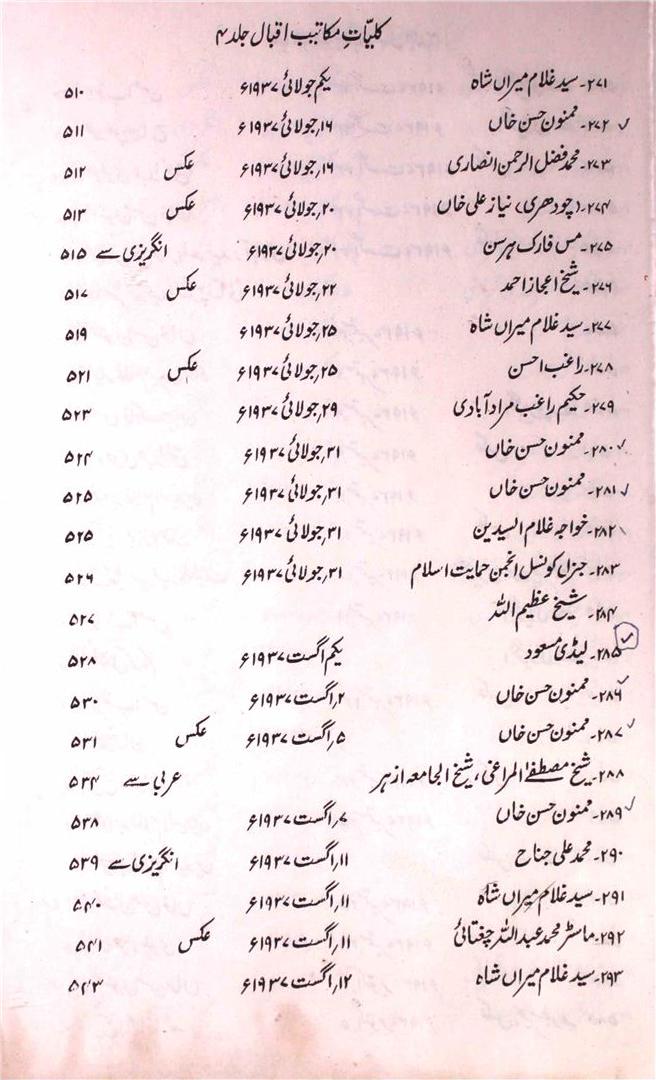 کلیّاتِ مکاتیب اقبال جلد ۴
۲۷۱۔ سید غلام میراں شاہ یکم جولائی ۱۹۳۷ء ۵۱۰
۲۷۲۔ ممنون حسن خاں ۱۶؍جولائی ۱۹۳۷ء ۵۱۱
۲۷۳۔ محمد فضل الرحمن انصاری ۱۶؍جولائی ۱۹۳۷ء عکس ۵۱۲
۲۷۴۔ (چودھری) نیاز علی خاں ۲۰؍جولائی ۱۹۳۷ء عکس ۵۱۳
۲۷۵۔ مس فارک ہرسن ۲۰؍جولائی ۱۹۳۷ء انگریزی سے ۵۱۵
۲۷۶۔ شیخ اعجاز احمد ۲۲؍جولائی ۱۹۳۷ء عکس ۵۱۷
۲۷۷۔ سید غلام میراں شاہ ۲۵؍جولائی ۱۹۳۷ء ۵۱۹
۲۷۸۔ راغب احسن ۲۵؍جولائی ۱۹۳۷ء عکس ۵۲۱
۲۷۹۔ حکیم راغب مرادآبادی ۲۹؍جولائی ۱۹۳۷ء ۵۲۳
۲۸۰۔ ممنون حسن خاں ۳۱؍جولائی ۱۹۳۷ء ۵۲۴
۲۸۱۔ ممنون حسن خاں ۳۱؍جولائی ۱۹۳۷ء ۵۲۵
۲۸۲۔ خواجہ غلام السیدین ۳۱؍جولائی ۱۹۳۷ء ۵۲۵
۲۸۳۔ جنرل کونسل انجمن حمایت اسلام ۳۱؍جولائی ۱۹۳۷ء ۵۲۶
۲۸۴۔ شیخ عظیم اللہ ۵۲۷
۲۸۵۔ لیڈی مسعود یکم اگست ۱۹۳۷ء ۵۲۸
۲۸۶۔ ممنون حسن خاں ۲؍اگست ۱۹۳۷ء ۵۳۰
۲۸۷۔ ممنون حسن خاں ۵؍اگست ۱۹۳۷ء عکس ۵۳۱
۲۸۸۔ شیخ مصطفےٰ المراغی، شیخ الجامعہ ازہر عربی سے ۵۳۴
۲۸۹۔ ممنون حسن خاں ۷؍اگست ۱۹۳۷ء ۵۳۸
۲۹۰۔ محمد علی جناح ۱۱؍اگست ۱۹۳۷ء انگریزی سے ۵۳۹
۲۹۱۔ سید غلام میراں شاہ ۱۱؍اگست ۱۹۳۷ء ۵۴۰
۲۹۲۔ ماسٹر محمد عبداللہ چغتائی ۱۱؍اگست ۱۹۳۷ء عکس ۵۴۱
۲۹۳۔ سید غلام میراں شاہ ۱۲؍اگست ۱۹۳۷ء ۵۴۳